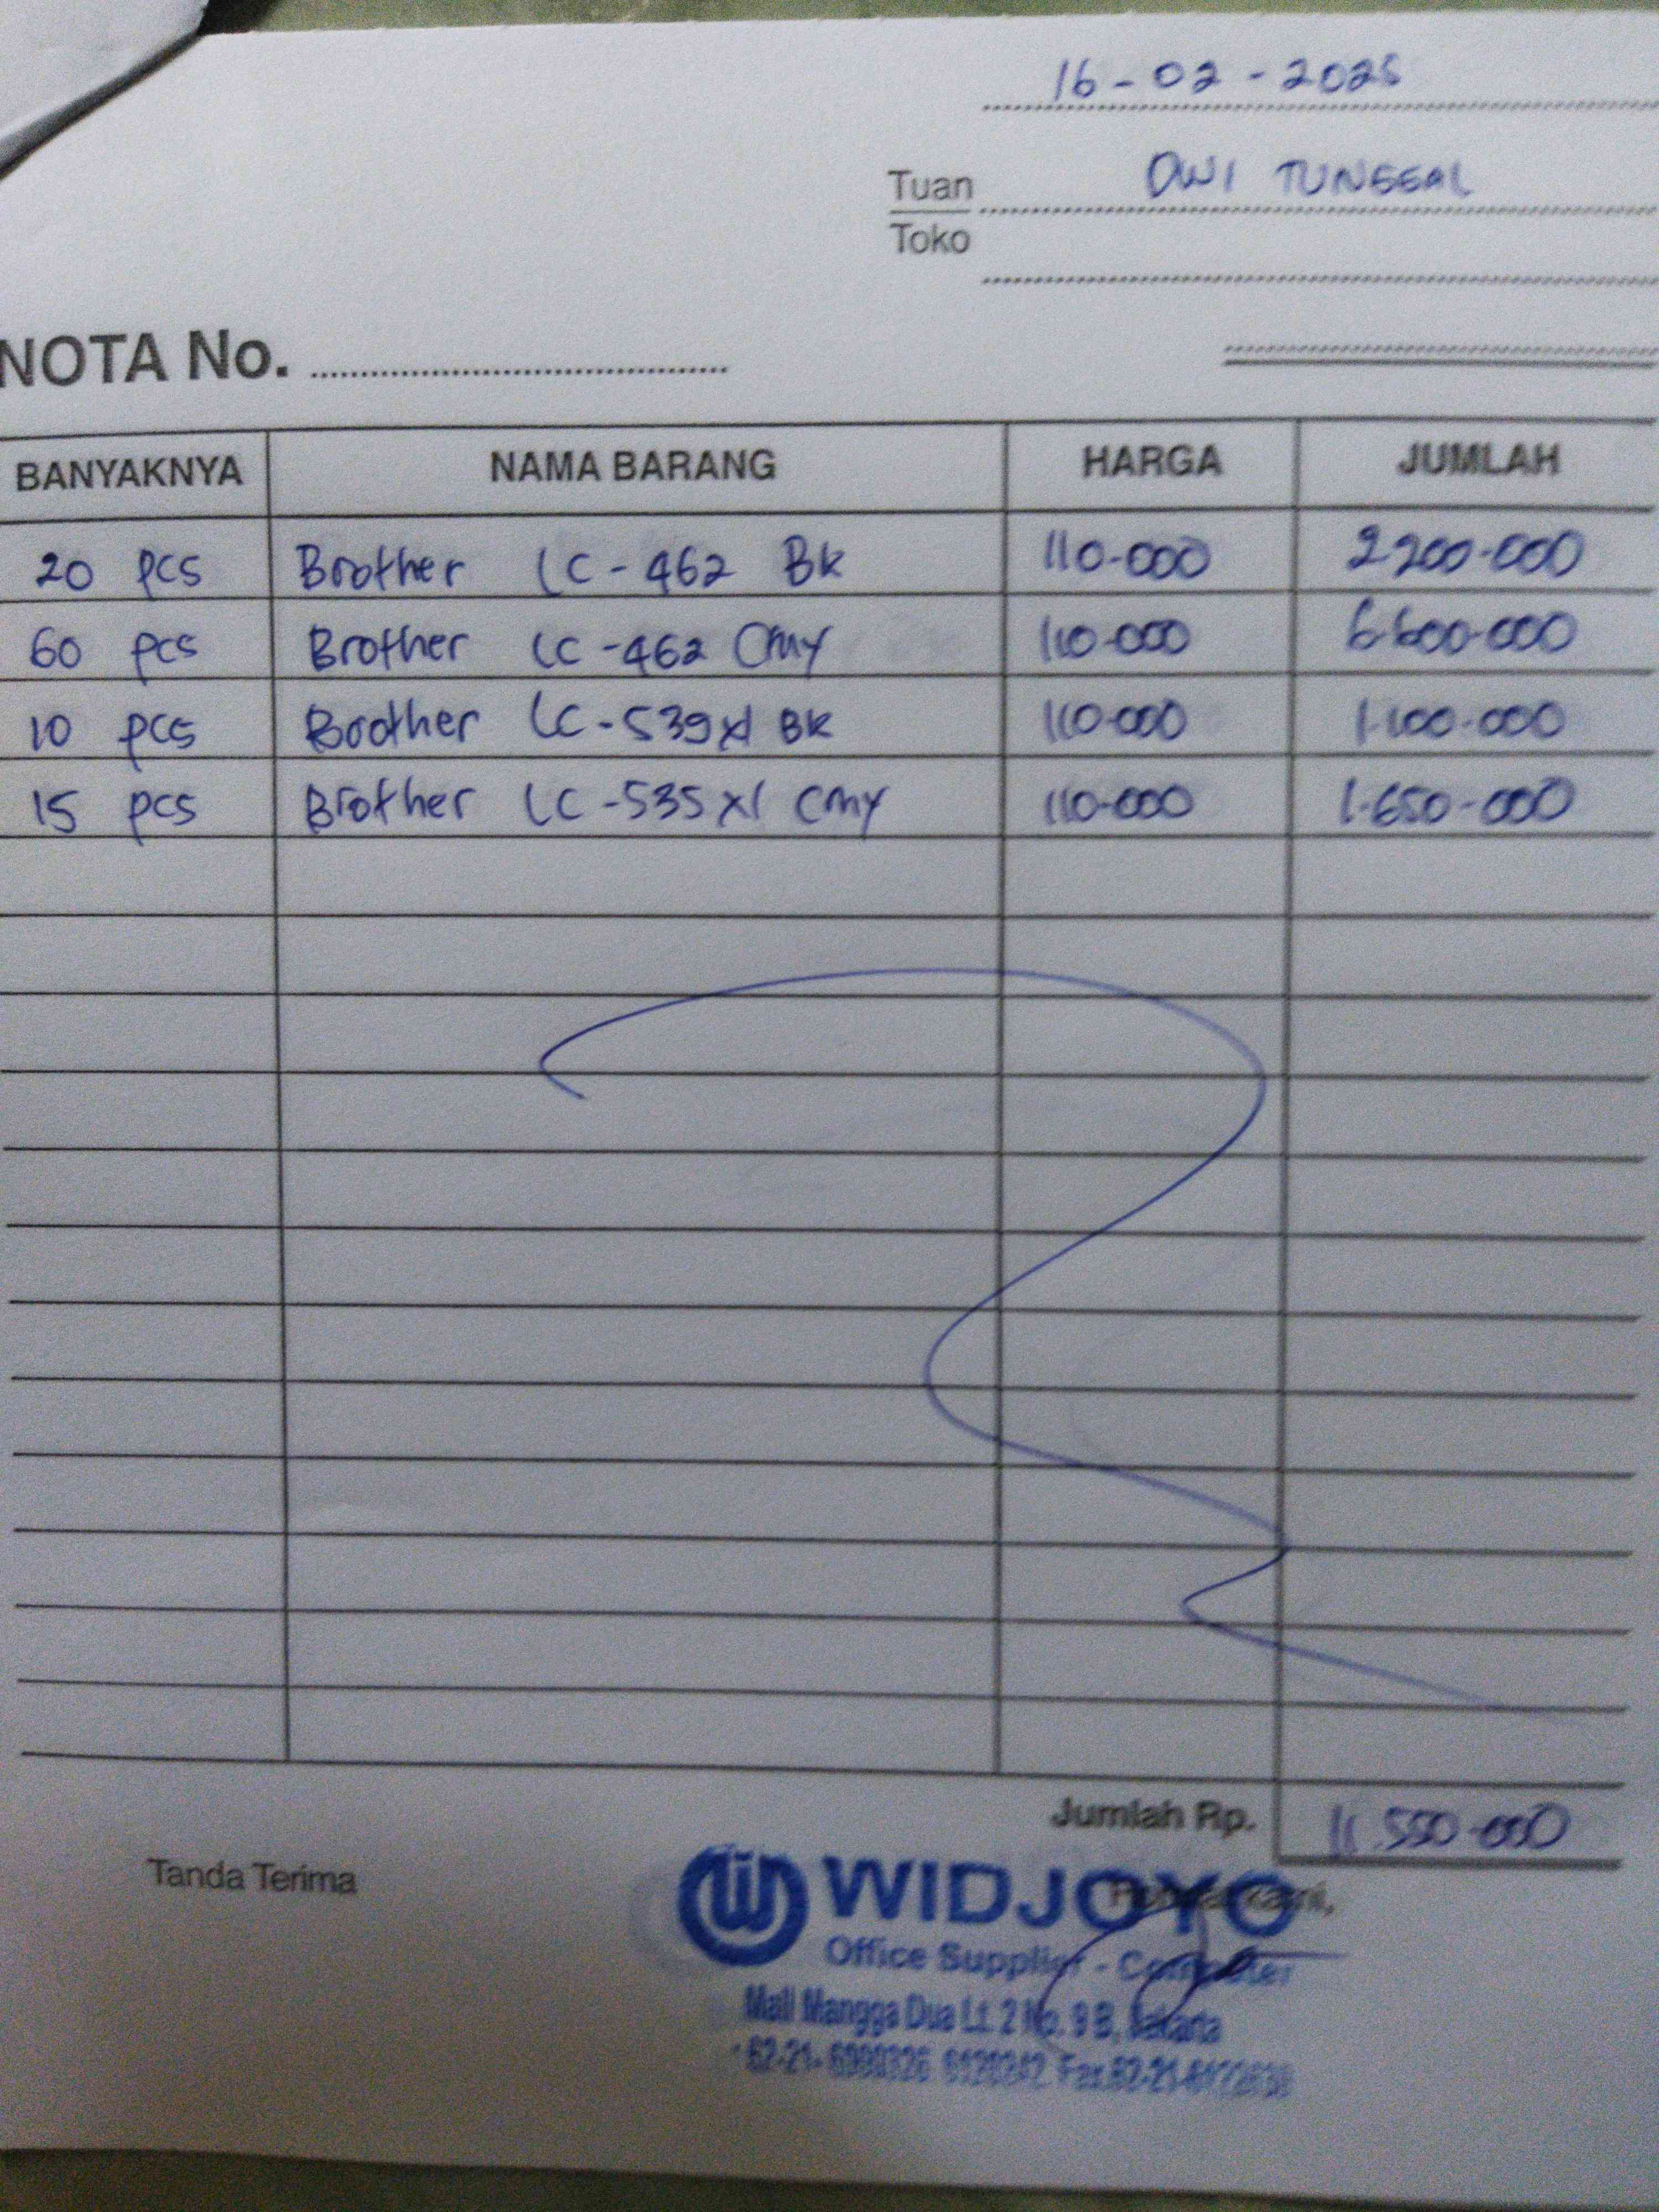 16-02-2025
Tuan DWI TUNGGAL
Toko
NOTA No.
BANYAKNYA NAMA BARANG HARGA JUMLAH
20 pcs Brother LC-462 BK 110-000 2-200-000
60 pcs Brother LC-462 CMY 110-000 6-600-000
10 pcs Brother LC-539xl BK 110-000 1-100-000
15 pcs Brother LC-535xl CMY 110-000 1-650-000
Jumlah Rp. 11.550-000
Tanda Terima
WIDJOYO
Office Supplier - Computer
Mall Mangga Dua Lt. 2 No. 9 B, Jakarta
62-21- Fax.62-21-